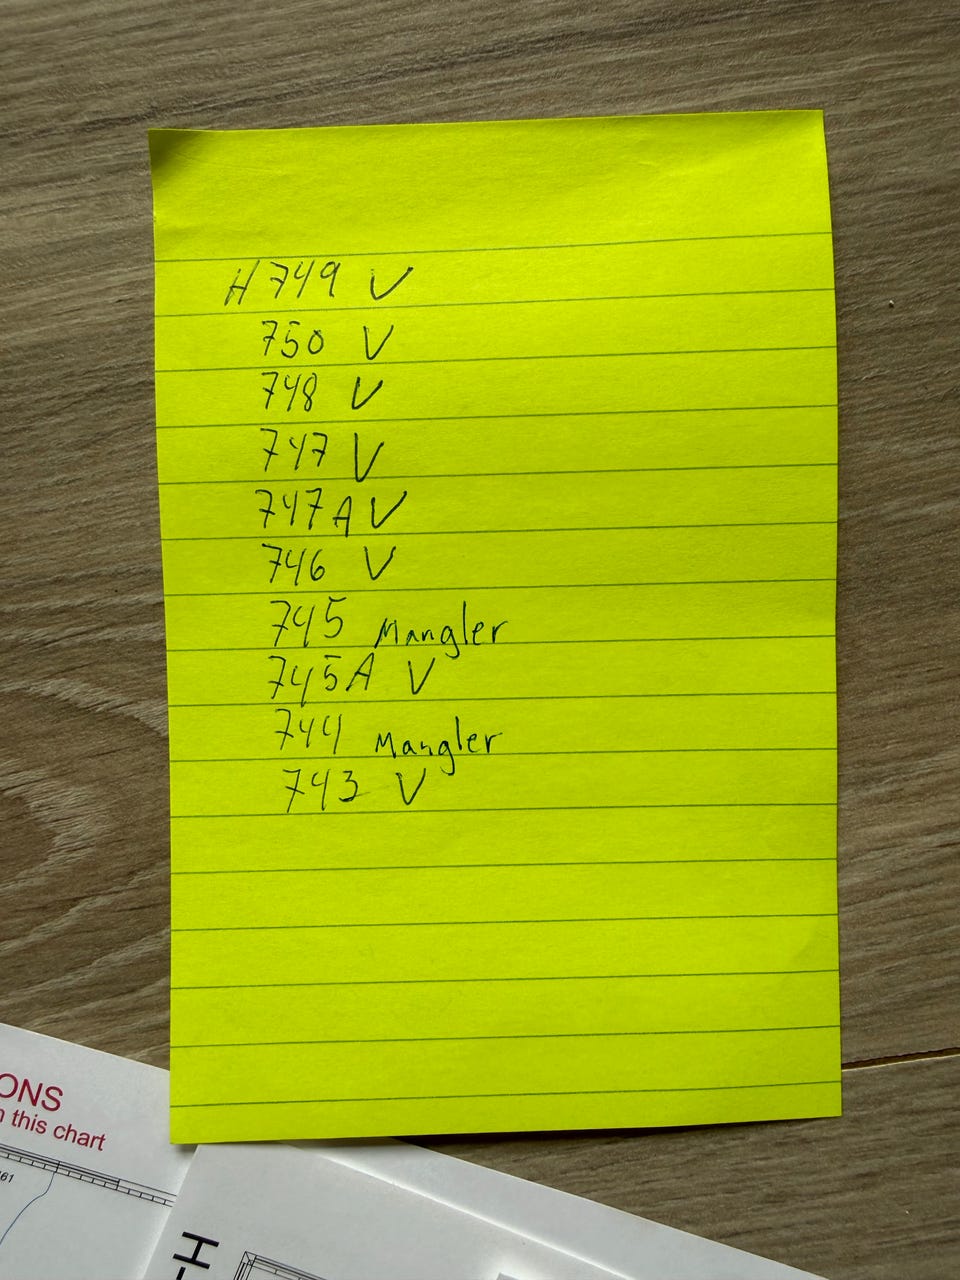 H749 V
750 V
748 V
747 V
747A V
746 V
745 Mangler
745A V
744 Mangler
743 V
ONS
this chart
61
H